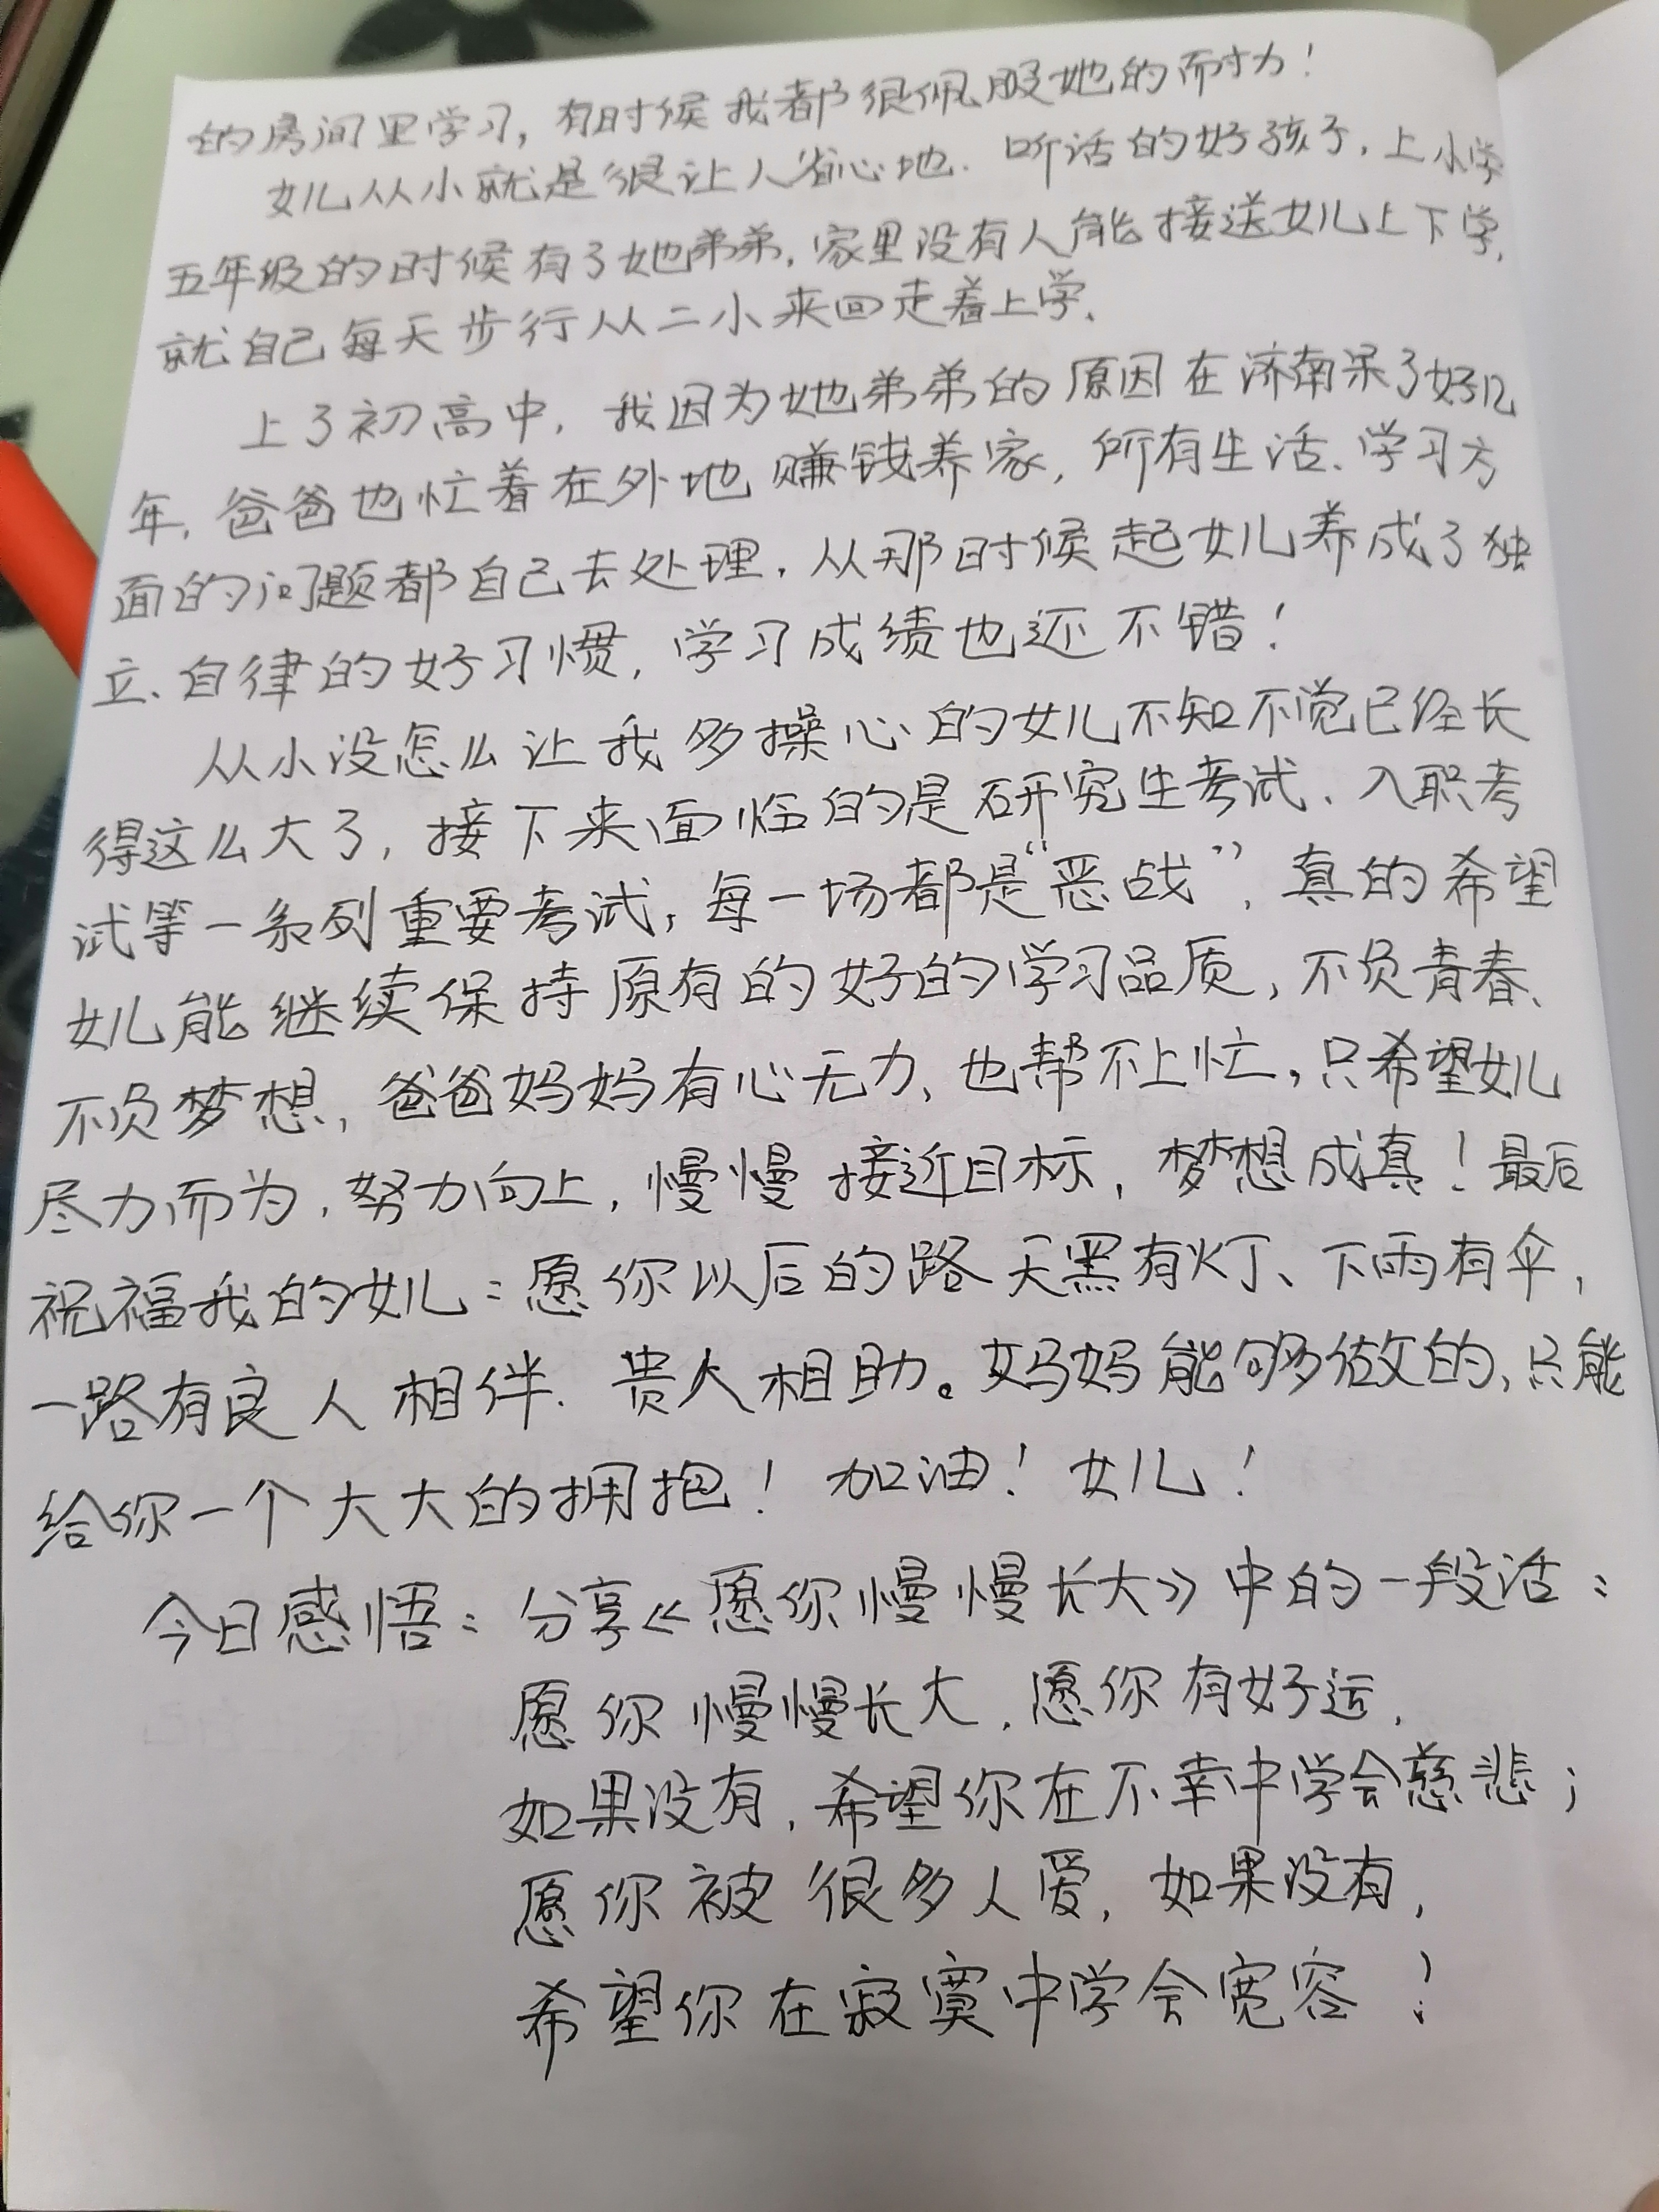 的房间里学习，有时候我都很佩服她的耐力！
女儿从小就是很让人省心地、听话的好孩子，上小学
五年级的时候有了她弟弟，家里没有人能接送女儿上下学，
就自己每天步行从二小来回走着上学。
上了初高中，我因为她弟弟的原因在济南呆了好几
年，爸爸也忙着在外地赚钱养家，所有生活、学习方
面的问题都自己去处理，从那时候起女儿养成了独
立、自律的好习惯，学习成绩也还不错！
从小没怎么让我多操心的女儿不知不觉已经长
得这么大了，接下来面临的是研究生考试、入职考
试等一系列重要考试，每一场都是“恶战”，真的希望
女儿能继续保持原有的好的学习品质，不负青春、
不负梦想，爸爸妈妈有心无力、也帮不上忙，只希望女儿
尽力而为，努力向上，慢慢接近目标，梦想成真！最后
祝福我的女儿：愿你以后的路天黑有灯、下雨有伞，
一路有良人相伴、贵人相助。妈妈能够做的，只能
给你一个大大的拥抱！加油！女儿！
今日感悟：分享《愿你慢慢长大》中的一段话：
愿你慢慢长大，愿你有好运，
如果没有，希望你在不幸中学会慈悲；
愿你被很多人爱，如果没有，
希望你在寂寞中学会宽容！